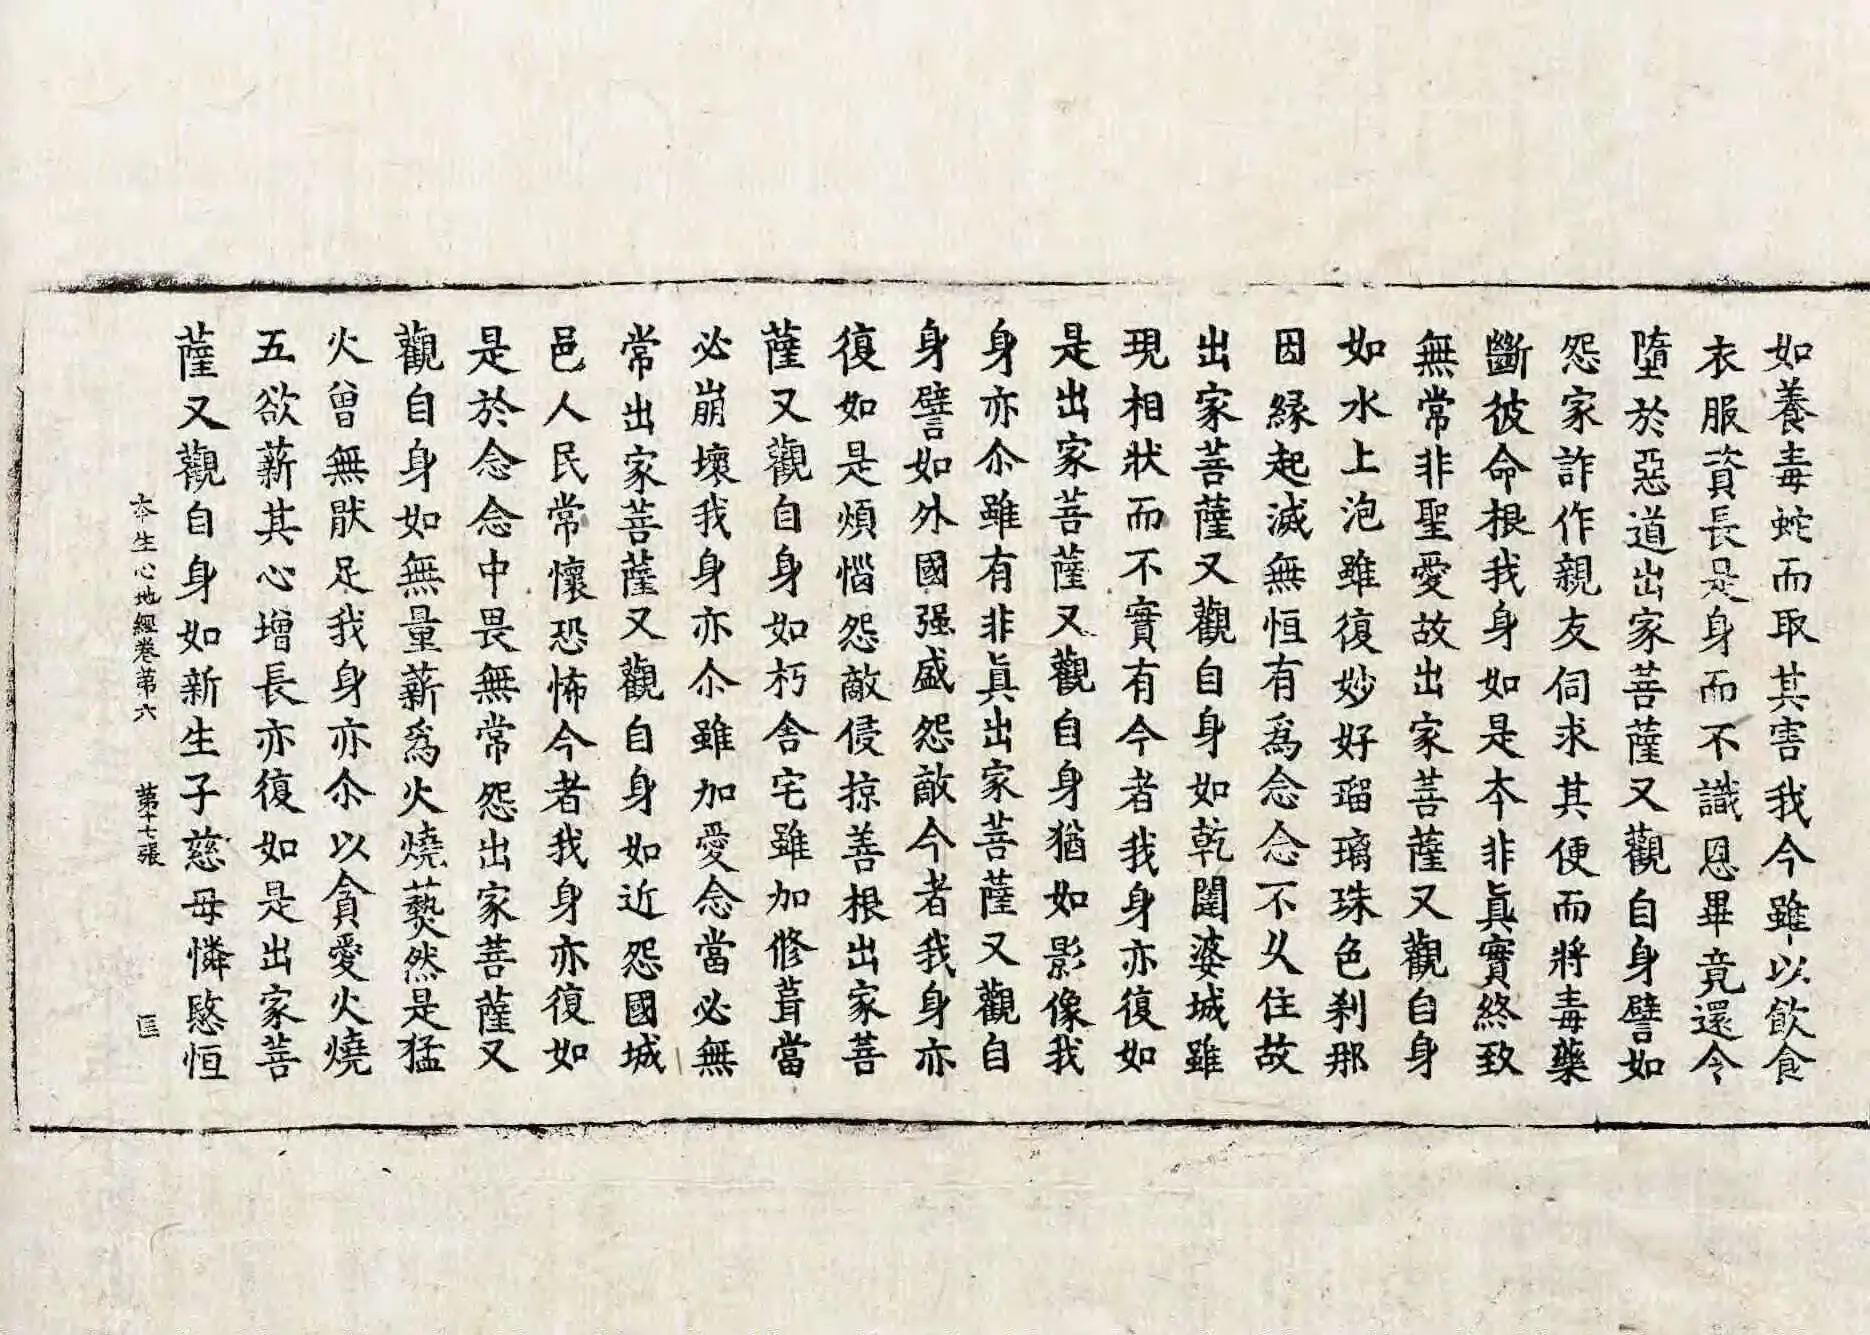 如養毒蛇而取其害我今雖以飲食
衣服資長是身而不識恩畢竟還令
墮於惡道出家菩薩又觀自身譬如
怨家詐作親友伺求其便而將毒藥
斷彼命根我身如是夲非眞實終致
無常非聖愛故出家菩薩又觀自身
如水上泡雖復妙好瑠璃珠色刹那
因縁起滅無恒有爲念念不乆住故
出家菩薩又觀自身如乾闥婆城雖
現相状而不實有今者我身亦復如
是出家菩薩又觀自身猶如影像我
身亦尒雖有非眞出家菩薩又觀自
身譬如外國强盛怨敵今者我身亦
復如是煩惱怨敵侵掠善根出家菩
薩又觀自身如朽舍宅雖加修葺當
必崩壞我身亦尒雖加愛念當必無
常出家菩薩又觀自身如近怨國城
邑人民常懷恐怖今者我身亦復如
是於念念中畏無常怨出家菩薩又
觀自身如無量薪爲火燒爇然是猛
火曾無猒足我身亦尒以貪愛火燒
五欲薪其心增長亦復如是出家菩
薩又觀自身如新生子慈母憐愍恒
夲生心地經卷第六 第十七張 匡